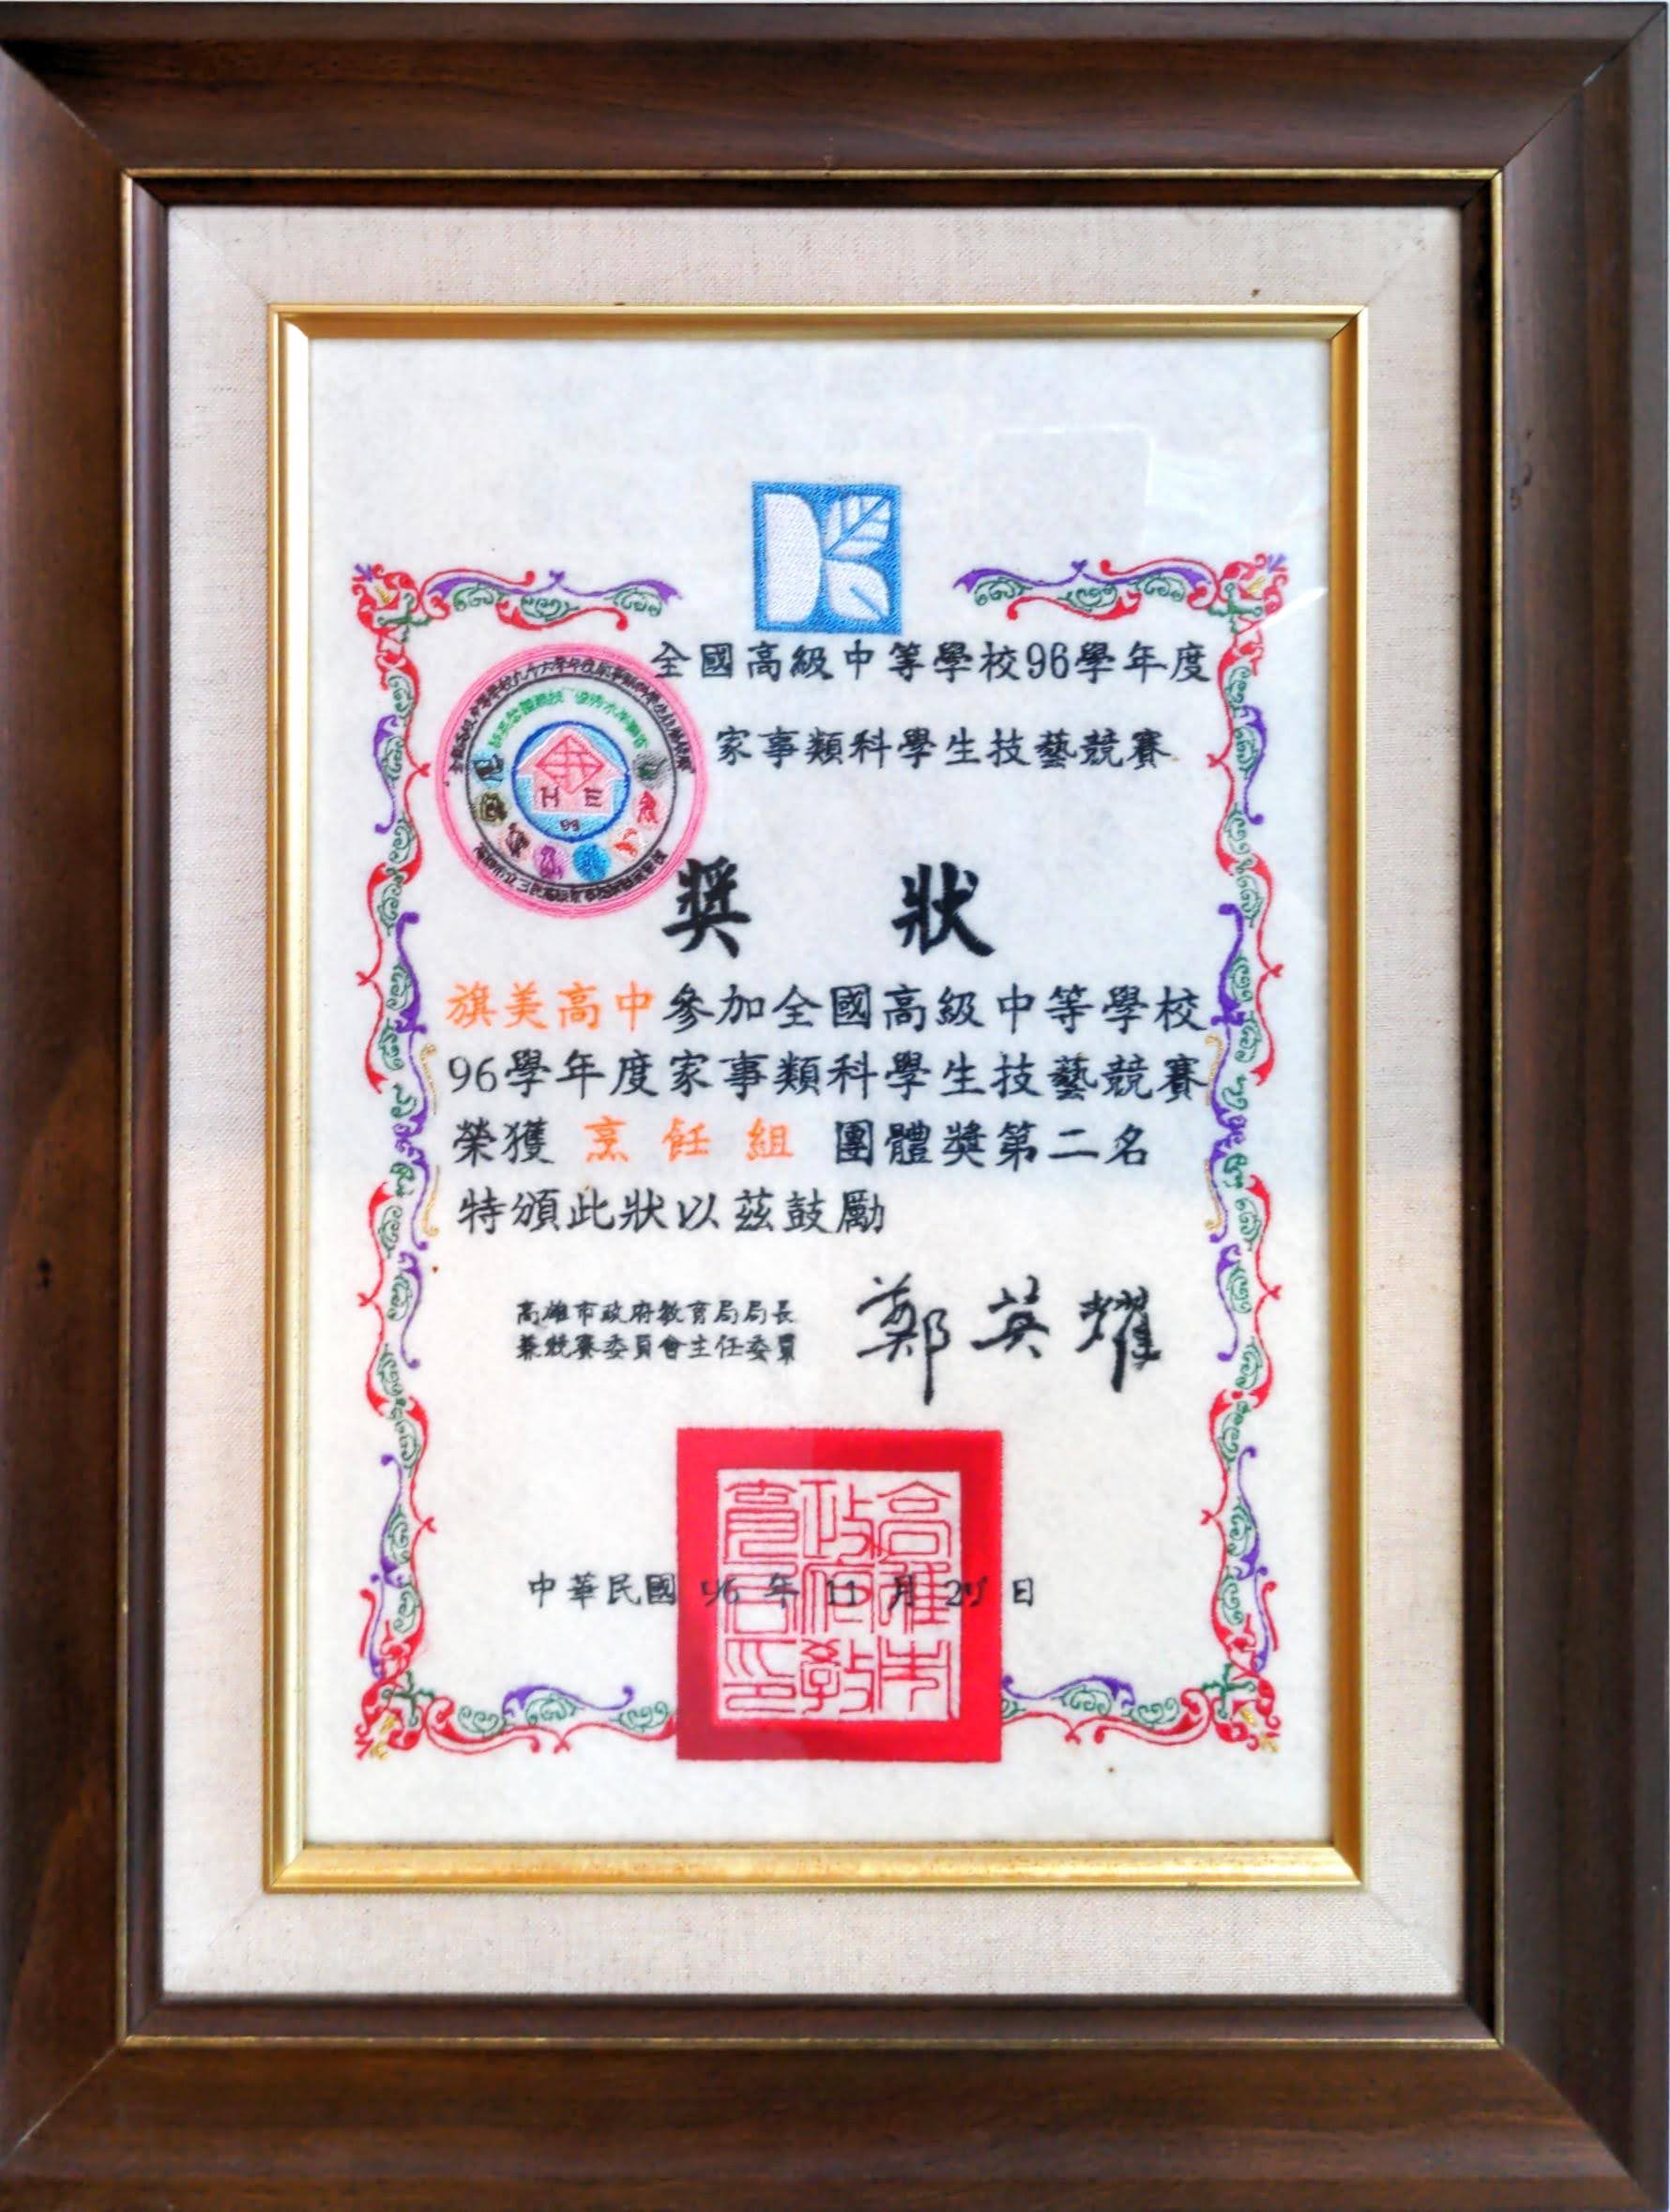 全國高級中等學校96學年度
家事類科學生技藝競賽
H E
獎 狀
旗美高中參加全國高級中等學校
96學年度家事類科學生技藝競賽
榮獲 烹飪組 團體獎第二名
特頒此狀以茲鼓勵
高雄市政府教育局局長
兼競賽委員會主任委員
鄭英耀
中華民國 96 年 11 月 日
高雄市政府教育局印